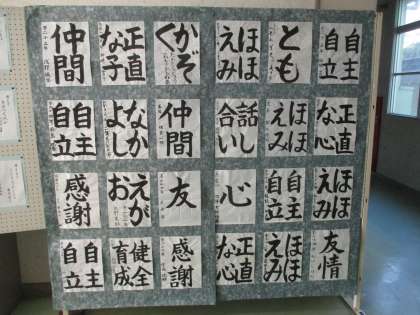 自主
自立
とも
ほほ
えみ
かぞ
く
正直
な子
仲間
正直
な心
ほほ
えみ
話し
合い
仲間
なか
よし
自主
自立
ほほ
えみ
自主
自立
心
友
えが
お
感謝
友情
ほほ
えみ
正直
な心
感謝
健全
育成
自主
自立